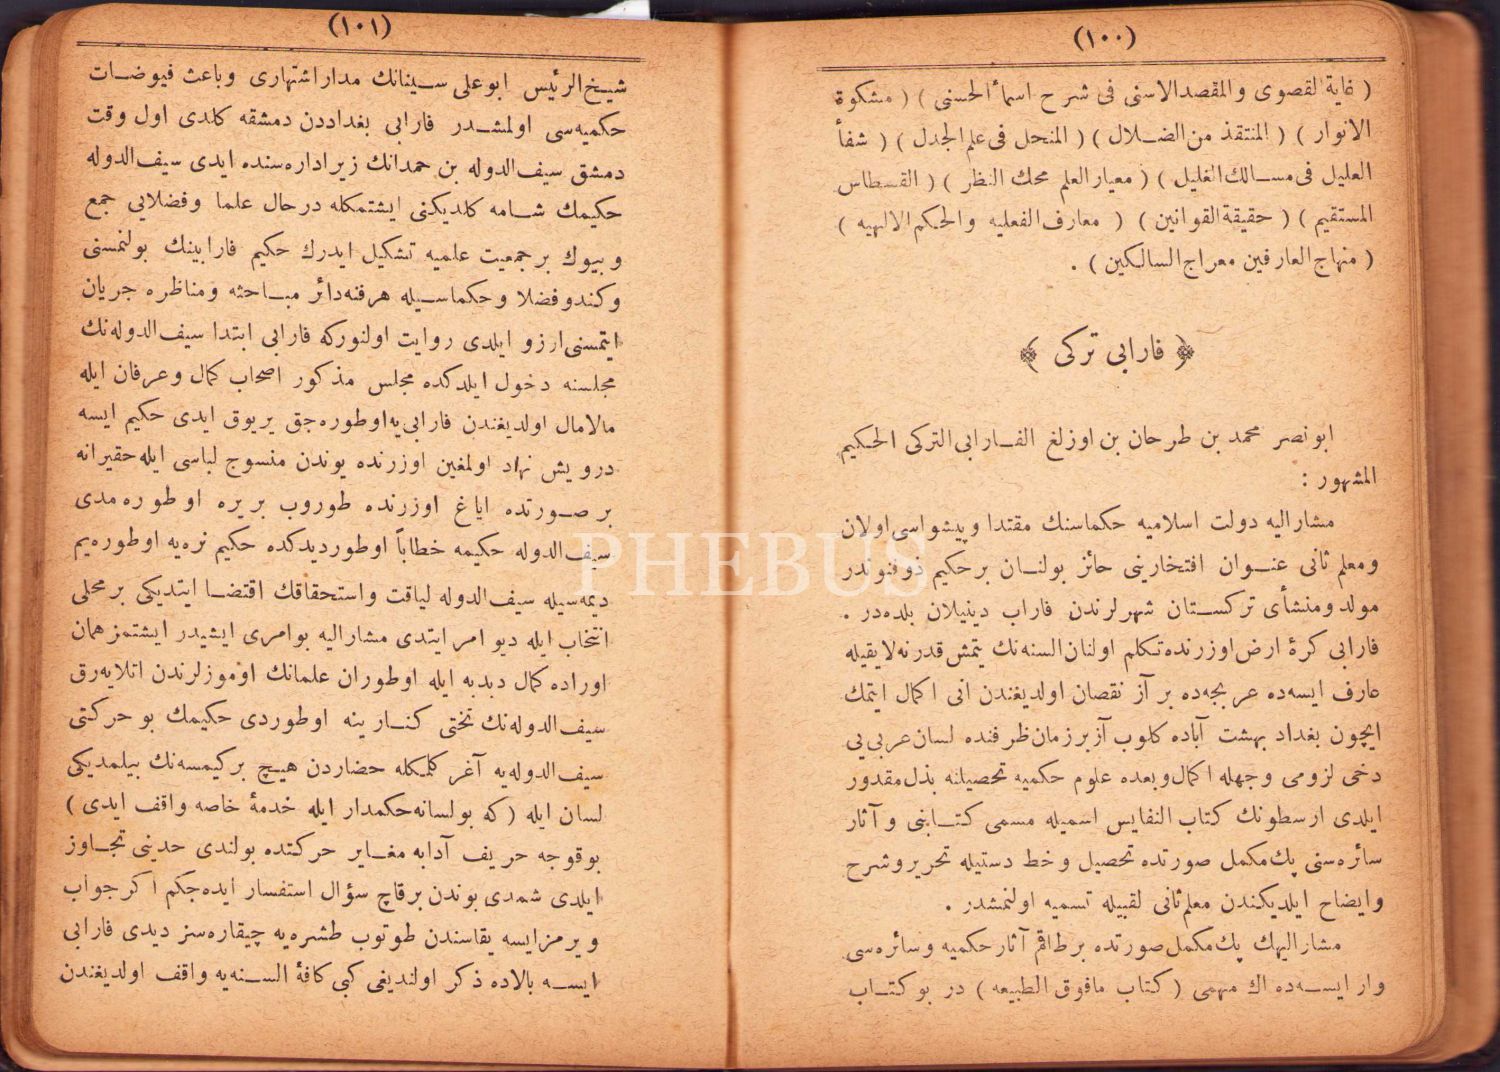 (١٠٠)
( غاية القصوى والمقصد الاسنى فى شرح اسماء الحسنى ) ( مشكوة
الانوار ) ( المنتقذ من الضلال ) ( المنحل فى علم الجدل ) ( شفأ
العليل فى مسالك الغليل ) ( معيار العلم محك النظر ) ( القسطاس
المستقيم ) ( حقيقة القوانين ) ( معارف الفعليه والحكم الالهيه )
( منهاج العارفين معراج السالكين ) .
﴿ فارابى تركى ﴾
ابونصر محمد بن طرحان بن اوزلغ الفارابى التركى الحكيم
المشهور :
مشاراليه دولت اسلاميه حكماسنك مقتدا وپيشواسى اولان
ومعلم ثانى عنوان افتخارينى حائز بولنان برحكيم ذوفنوندر
مولد ومنشأى تركستان شهرلرندن فاراب دينيلان بلده‌در .
فارابى كرۀ ارض اوزرنده تكلم اولنان السنه‌نك يتمش قدرنه لايقيله
عارف ايسه‌ده عربجه‌ده بر آز نقصان اولديغندن انى اكمال ايتمك
ايچون بغداد بهشت آباده كلوب آز برزمان ظرفنده لسان عربى‌يى
دخى لزومى وجهله اكمال وبعده علوم حكميه تحصيلنه بذل مقدور
ايلدى ارسطونك كتاب النفايس اسميله مسمى كتابنى و آثار
سائره‌سنى پك مكمل صورتده تحصيل وخط دستيله تحرير وشرح
وايضاح ايلديكندن معلم ثانى لقبيله تسميه اولنمشدر .
مشاراليهك پك مكمل صورتده برطاقم آثار حكميه وسائره‌سى
وار ايسه‌ده اك مهمى ( كتاب مافوق الطبيعه ) در بو كتاب
(١٠١)
شيخ الرئيس ابوعلى سينانك مدار اشتهارى وباعث فيوضات
حكميه‌سى اولمشدر فارابى بغداددن دمشقه كلدى اول وقت
دمشق سيف الدوله بن حمدانك زير اداره‌سنده ايدى سيف الدوله
حكيمك شامه كلديكنى ايشتمكله درحال علما وفضلايى جمع
وبيوك برجمعيت علميه تشكيل ايدرك حكيم فارابينك بولنمسنى
وكندو فضلا وحكماسيله هرفنه دائر مباحثه ومناظره جريان
ايتمسنى ارزو ايلدى روايت اولنوركه فارابى ابتدا سيف الدوله‌نك
مجلسنه دخول ايلدكده مجلس مذكور اصحاب كمال وعرفان ايله
مالامال اولديغندن فارابى‌يه اوطوره‌جق يريوق ايدى حكيم ايسه
درويش نهاد اولمغين اوزرنده يوندن منسوج لباسى ايله حقيرانه
برصورتده اياغ اوزرنده طوروب بريره اوطوره‌مدى
سيف الدوله حكيمه خطاباً اوطورديدكده حكيم نره‌يه اوطوره‌يم
ديمه‌سيله سيف الدوله لياقت واستحقاقك اقتضا ايتديكى برمحلى
انتخاب ايله ديو امر ايتدى مشاراليه بو امرى ايشيدر ايشتمز همان
اوراده كمال دبدبه ايله اوطوران علمانك اوموزلرندن اتلايه‌رق
سيف الدوله‌نك تختى كنارينه اوطوردى حكيمك بو حركتى
سيف الدوله‌يه آغر كلمكله حضاردن هيچ بركيمسه‌نك بيلمديكى
لسان ايله ( كه بولسانه حكمدار ايله خدمۀ خاصه واقف ايدى )
بوقوجه حريف آدابه مغاير حركتده بولندى حدينى تجاوز
ايلدى شمدى بوندن برقاچ سؤال استفسار ايده‌جكم اكرجواب
ويرمزايسه يقاسندن طوتوب طشره‌يه چيقاره‌سز ديدى فارابى
ايسه بالاده ذكر اولنديغى كبى كافۀ السنه‌يه واقف اولديغندن
PHEBUS